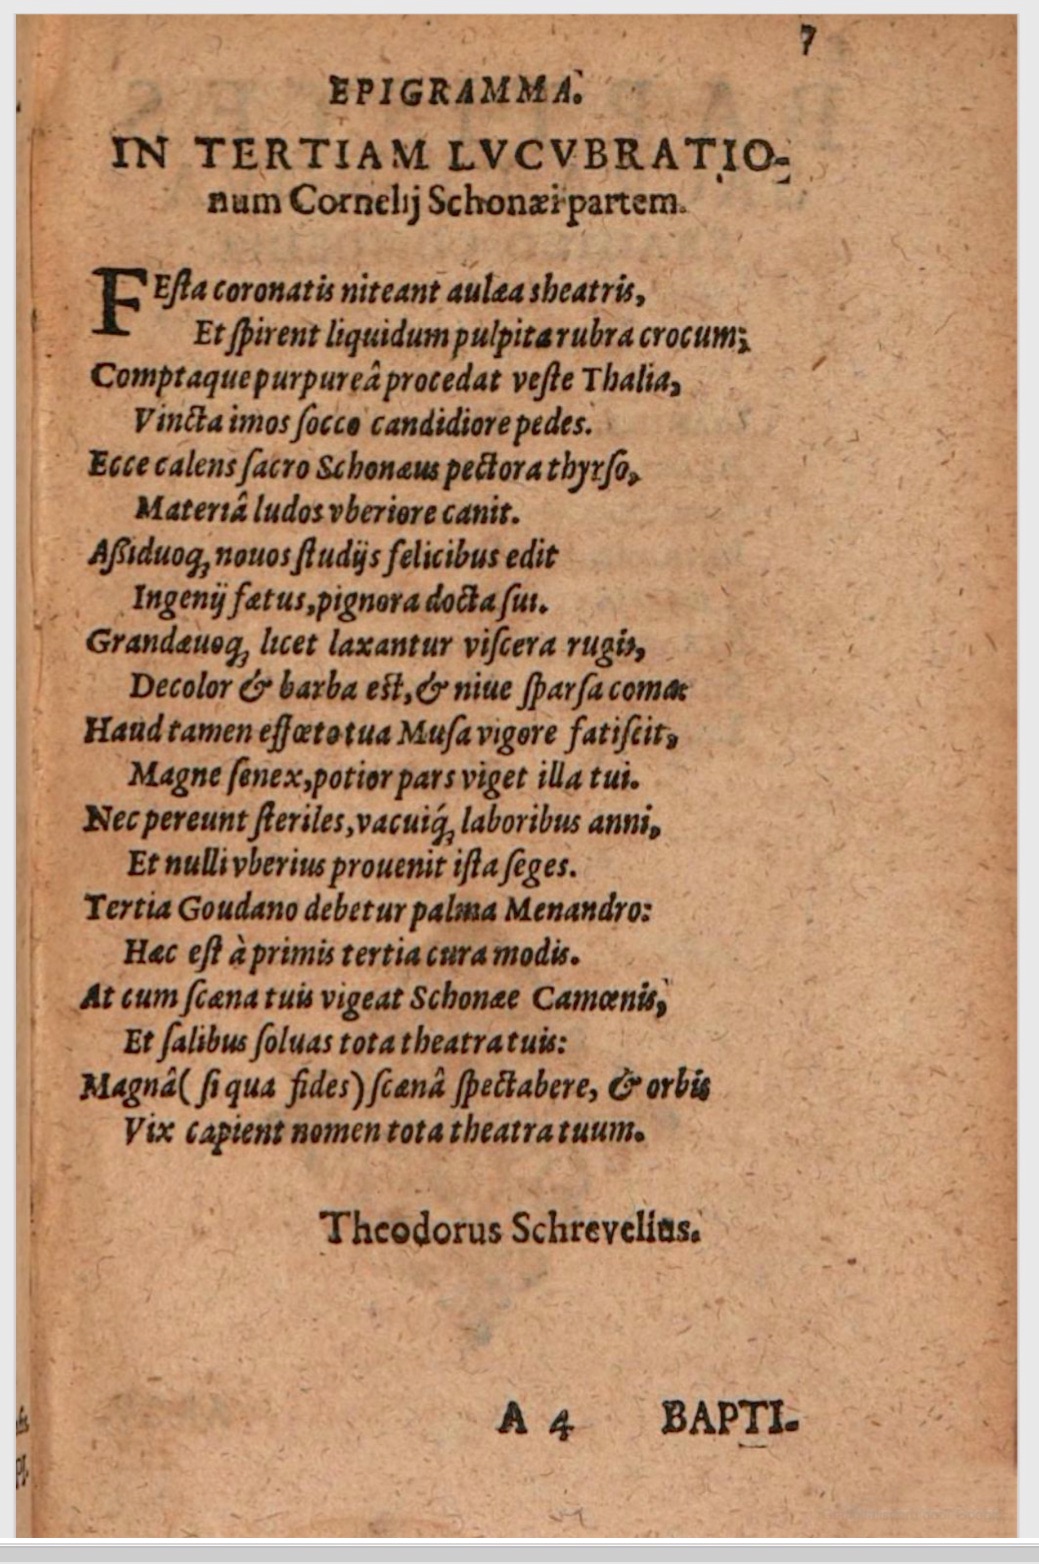 7
EPIGRAMMA.
IN TERTIAM LVCVBRATIO-
num Cornelij Schonæi partem.
FEſta coronatis niteant aulæa theatris,
Et ſpirent liquidum pulpita rubra crocum;
Comptaque purpureâ procedat veſte Thalia,
Vincta imos ſocco candidiore pedes.
Ecce calens ſacro Schonæus pectora thyrſo,
Materiâ ludos vberiore canit.
Aſsiduoq́; nouos ſtudijs felicibus edit
Ingenij fætus, pignora docta ſui.
Grandæuoq́; licet laxantur viſcera rugis,
Decolor & barba eſt, & niue ſparſa comæ
Haud tamen effœto tua Muſa vigore fatiſcit,
Magne ſenex, potior pars viget illa tui.
Nec pereunt ſteriles, vacuiq́; laboribus anni,
Et nulli vberius prouenit iſta ſeges.
Tertia Goudano debetur palma Menandro:
Hæc eſt à primis tertia cura modis.
At cum ſcæna tuis vigeat Schonæe Camœnis,
Et ſalibus ſoluas tota theatra tuis:
Magnâ (ſi qua fides) ſcænâ ſpectabere, & orbis
Vix capient nomen tota theatra tuum.
Theodorus Schrevelius.
A 4 BAPTI-